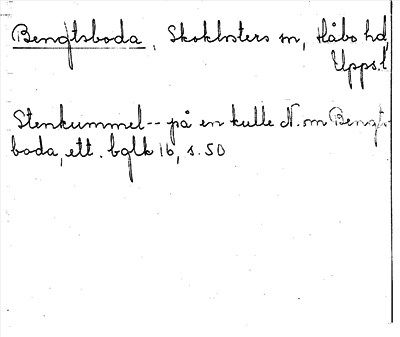 Bengtsboda, Skoklosters sn, Håbo hd,
Upps.l
Stenkummel -- på en kulle N. om Bengts-
boda, ett. bqlk 16, s. 50